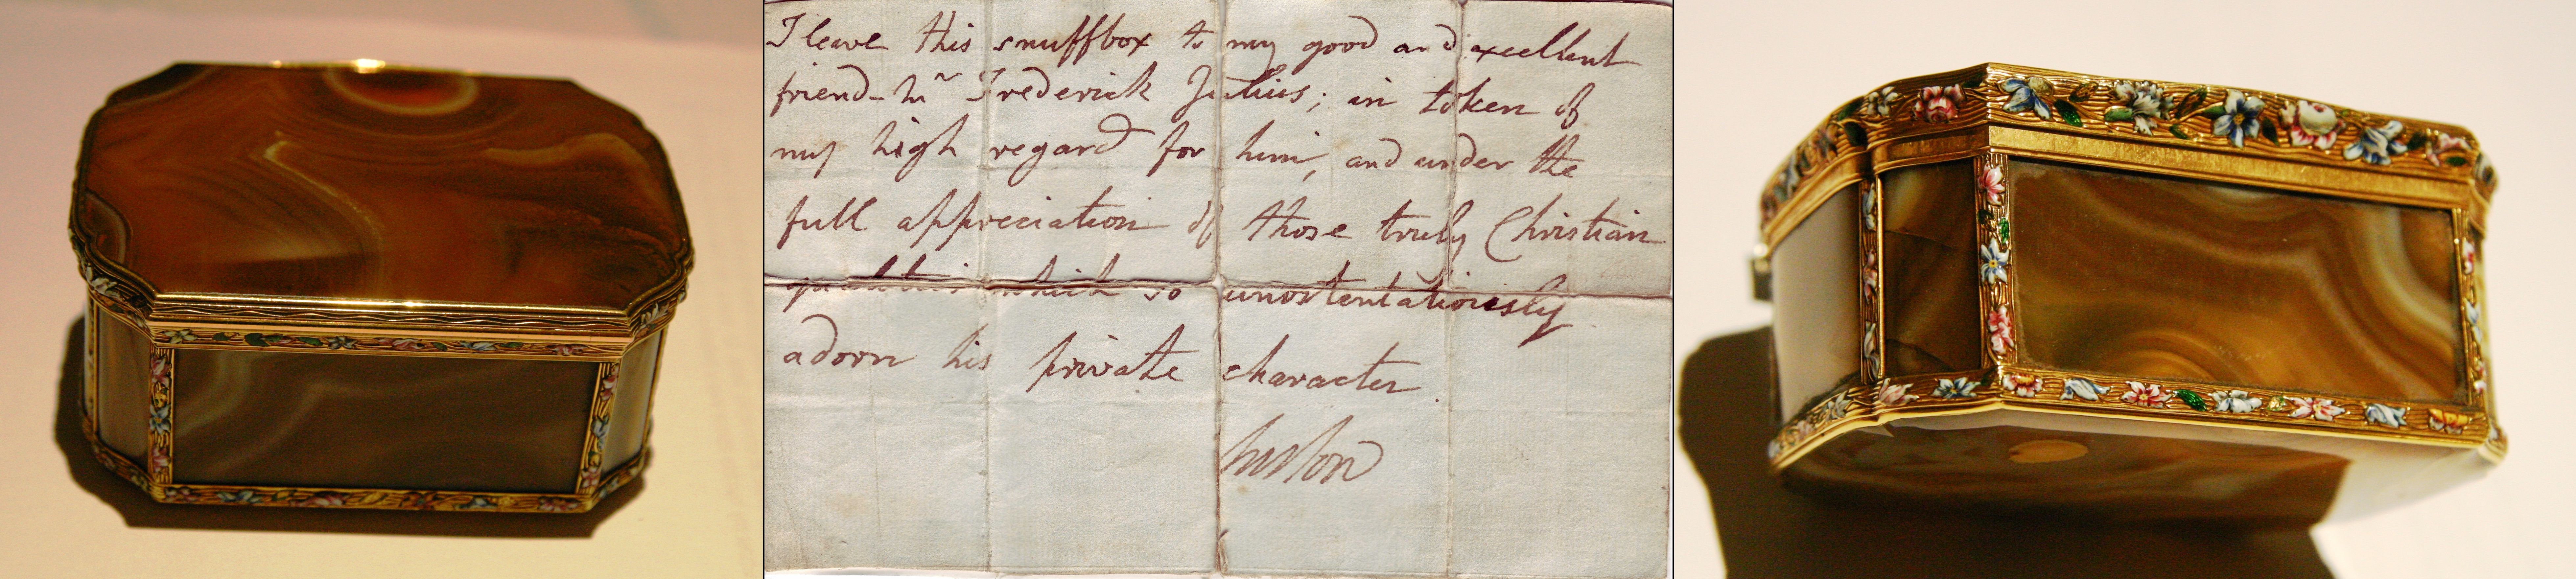 I leave this snuffbox to my good and excellent
friend - Mr Frederick Julius; in token of
my high regard for him, and under the
full appreciation of those truly Christian
qualities which so unostentatiously
adorn his private character.